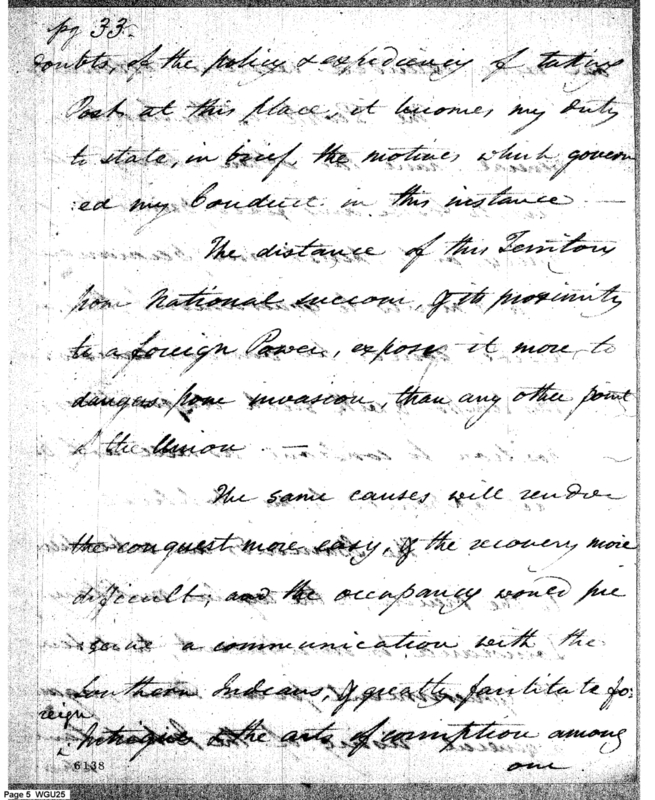 pg 33.
doubts, of the policy & expediency of taking
Post at this place, it becomes my duty
to state, in brief, the motives which govern
:ed my Conduct in this instance —
The distance of this Territory
from National succour, & its proximity
to a foreign Power, expose it more to
dangers from invasion, than any other point
of the Union —
The same causes will render
the conquest more easy, & the recovery more
difficult, and the occupancy would pre
serve a communication with the
Southern Indians, & greatly facilitate fo:
reign
^ Intrigues & the arts of corruption among
6138
our
Page 5 WGU25